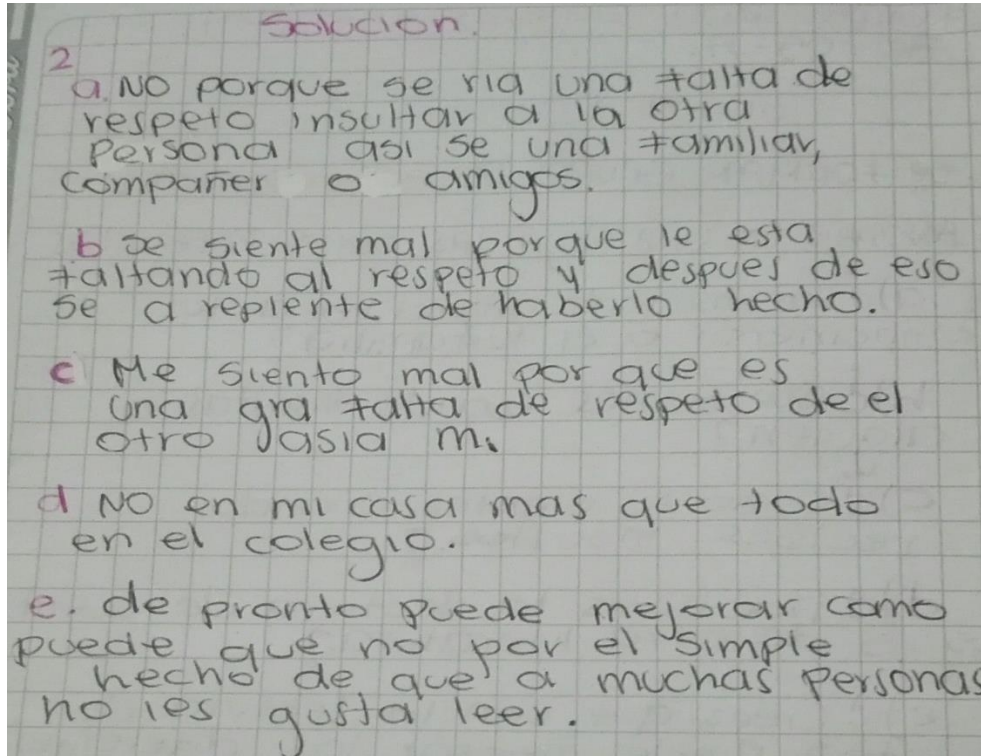 Solucion.
2
a. NO porque se ria una falta de
respeto insultar a la otra
persona asi se una familiar,
compañer o amigos.
b se siente mal porque le esta
faltando al respeto y despues de eso
se a repiente de haberlo hecho.
c Me siento mal por que es
una gra falta de respeto de el
otro jasia mi
d NO en mi casa mas que todo
en el colegio.
e. de pronto puede mejorar como
puede que no por el simple
hecho de que a muchas personas
no les gusta leer.